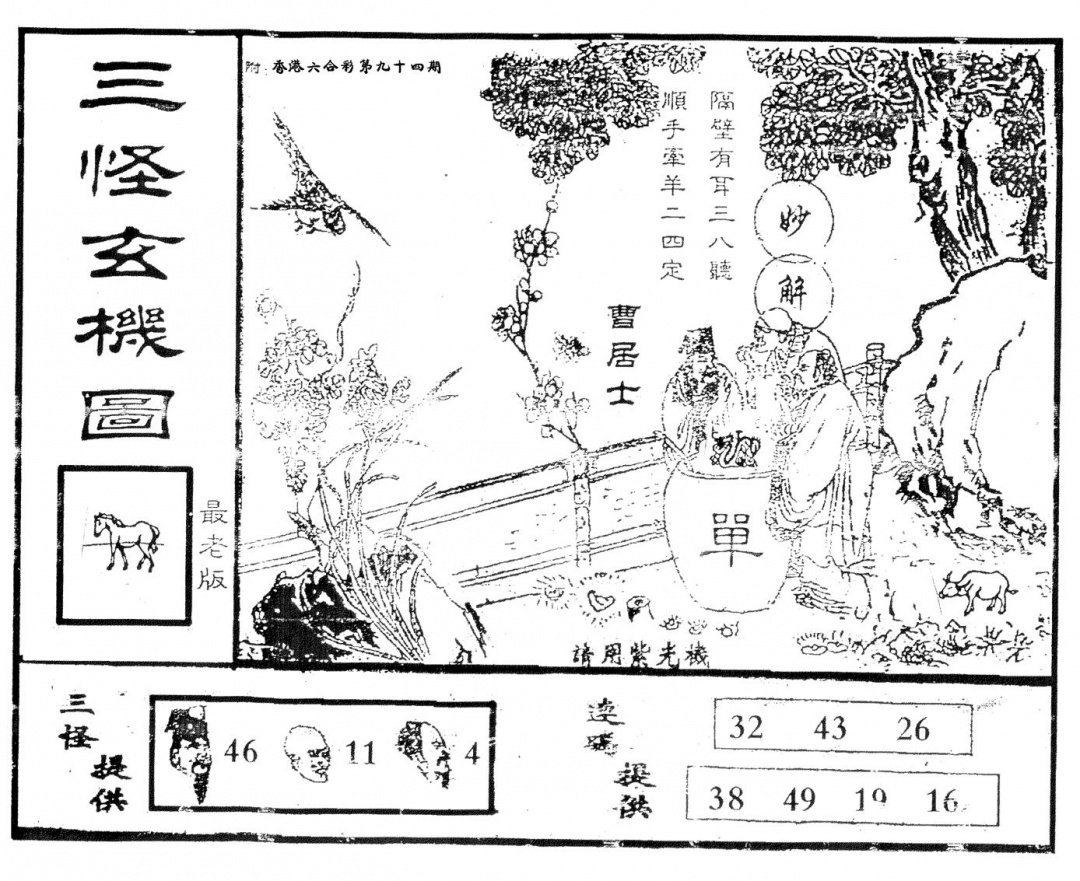 三怪玄機圖
最老版
附:香港六合彩第九十四期
隔壁有耳三八聽
順手牽羊二四定
妙解
曹居士
單
請用紫光機
三怪
提供
46 11 4
連碼
提供
32 43 26
38 49 19 16